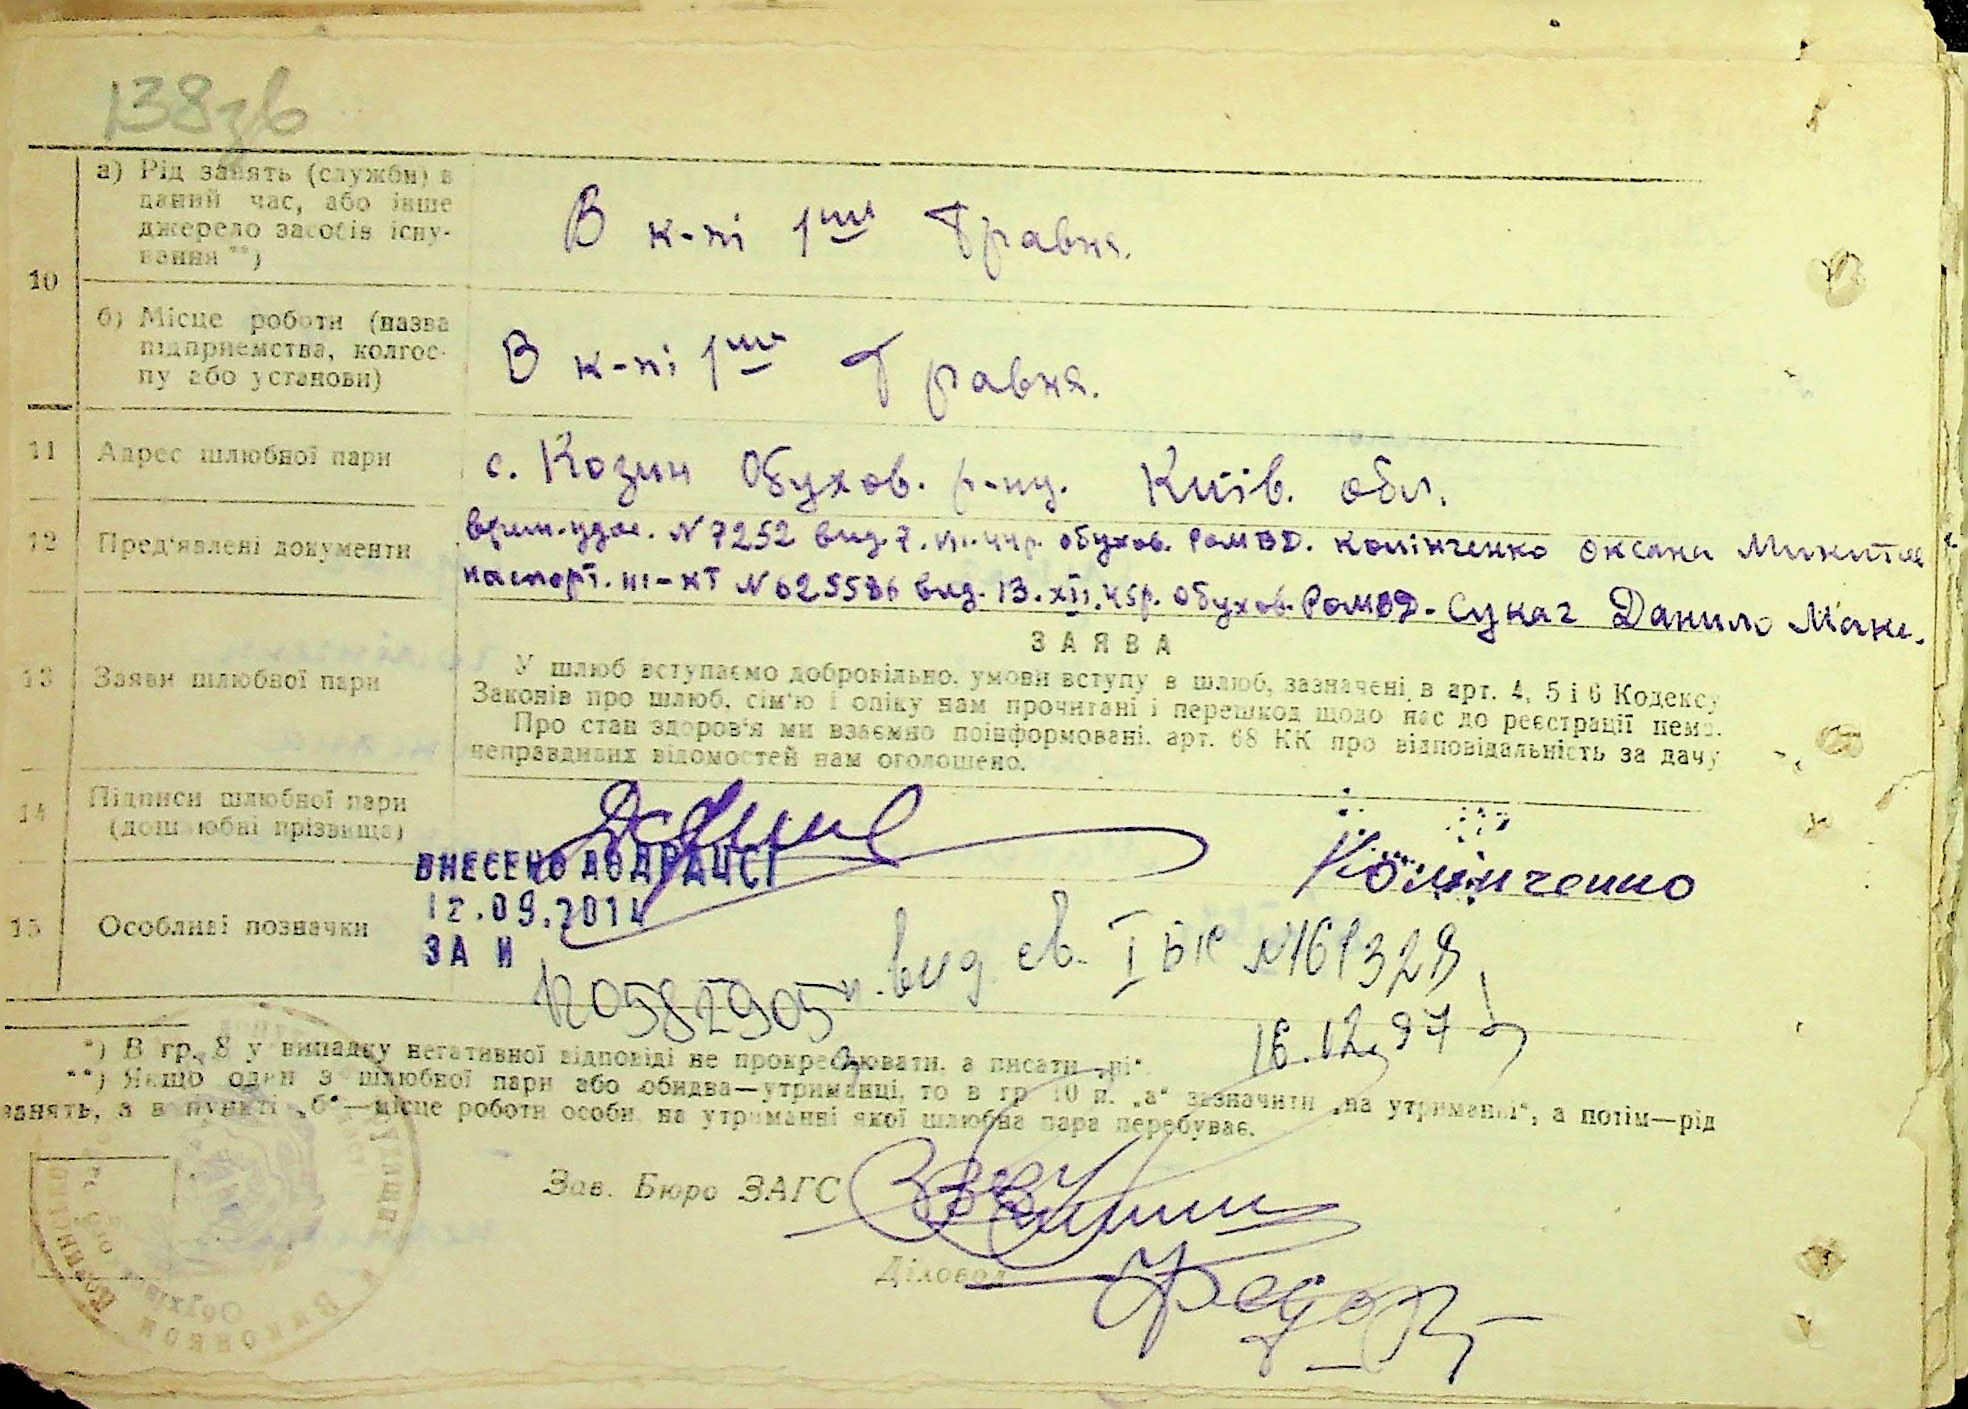 138зв
10
а) Рід занять (служби) в
даний час, або інше
джерело засобів існу-
вання **)
В к-пі 1ши Травня.
б) Місце роботи (назва
підприємства, колгос-
пу або установи)
В к-пі 1ши Травня.
11 Адрес шлюбної пари
с. Козин Обухов. р-ну. Київ. обл.
12 Пред'явлені документи
врем. удос. № 7252 вид. 7. 44р. Обухов. РОМВД. Комінченко Оксана
паспорт. III-КТ № 625586 вид. 13. XII. 45р. Обухов. РОМВД. Сукач Данило
ЗАЯВА
13 Заяви шлюбної пари
У шлюб вступаємо добровільно. умови вступу в шлюб, зазначені в арт. 4, 5 і 6 Кодексу
Законів про шлюб, сім'ю і опіку нам прочитані і перешкод щодо нас до реєстрації нема.
Про стан здоров'я ми взаємно поінформовані. арт. 68 КК про відповідальність за дачу
неправдивих відомостей нам оголошено.
14 Підписи шлюбної пари
(дошлюбні прізвища)
Комінченко
ВНЕСЕНО ДО ДРАЦСГ
12.09.2014
ЗА №
15 Особливі позначки
вид. св. І БК №161328
16.12.97
*) В гр. 8 у випадку негативної відповіді не прокреслювати, а писати „ні“.
**) Якщо один з шлюбної пари або обидва—утриманці, то в гр 10 п. „а“ зазначити „на утриманні“, а потім—рід
занять, а в пункті „б“—місце роботи особи, на утриманні якої шлюбна пара перебуває.
Зав. Бюро ЗАГС
Діловод